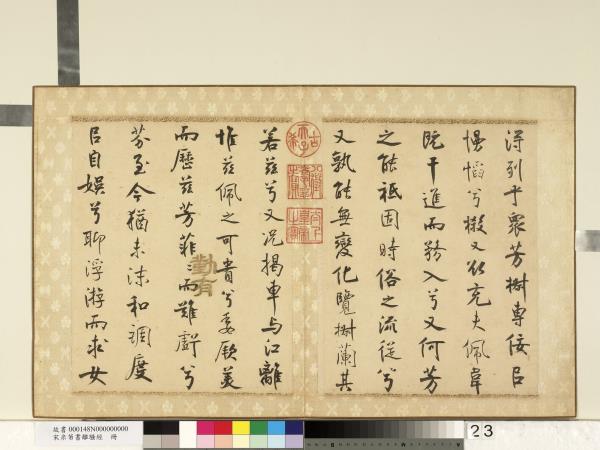 得列乎眾芳椒專佞以
慢慆兮樧又欲充夫佩韋
既干進而務入兮又何芳
之能祗固時俗之流從兮
又孰能無變化覽椒蘭其
古希天子
若茲兮又況揭車与江離
惟茲佩之可貴兮委厥美
而歷茲芳菲〻而難虧兮
勤有
芬至今猶未沫和調度
以自娛兮聊浮游而求女
故書 000148N000000000
宋米芾書離騷經 冊
23